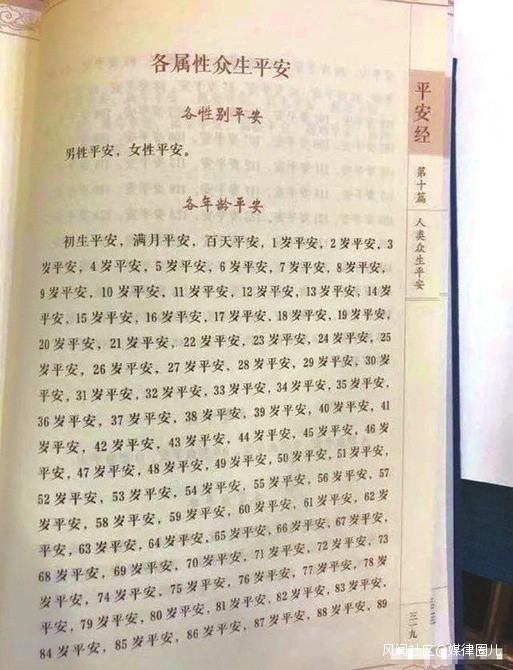 各属性众生平安
各性别平安
男性平安，女性平安。
各年龄平安
初生平安，满月平安，百天平安，1岁平安，2岁平安，3
岁平安，4岁平安，5岁平安，6岁平安，7岁平安，8岁平安，
9岁平安，10岁平安，11岁平安，12岁平安，13岁平安，14岁
平安，15岁平安，16岁平安，17岁平安，18岁平安，19岁平安，
20岁平安，21岁平安，22岁平安，23岁平安，24岁平安，25
岁平安，26岁平安，27岁平安，28岁平安，29岁平安，30岁
平安，31岁平安，32岁平安，33岁平安，34岁平安，35岁平安，
36岁平安，37岁平安，38岁平安，39岁平安，40岁平安，41
岁平安，42岁平安，43岁平安，44岁平安，45岁平安，46岁
平安，47岁平安，48岁平安，49岁平安，50岁平安，51岁平安，
52岁平安，53岁平安，54岁平安，55岁平安，56岁平安，57
岁平安，58岁平安，59岁平安，60岁平安，61岁平安，62岁
平安，63岁平安，64岁平安，65岁平安，66岁平安，67岁平安，
68岁平安，69岁平安，70岁平安，71岁平安，72岁平安，73
岁平安，74岁平安，75岁平安，76岁平安，77岁平安，78岁
平安，79岁平安，80岁平安，81岁平安，82岁平安，83岁平安，
84岁平安，85岁平安，86岁平安，87岁平安，88岁平安，89
平安经
第十篇
人类众生平安
三一九
风闻社区@媒律圈儿